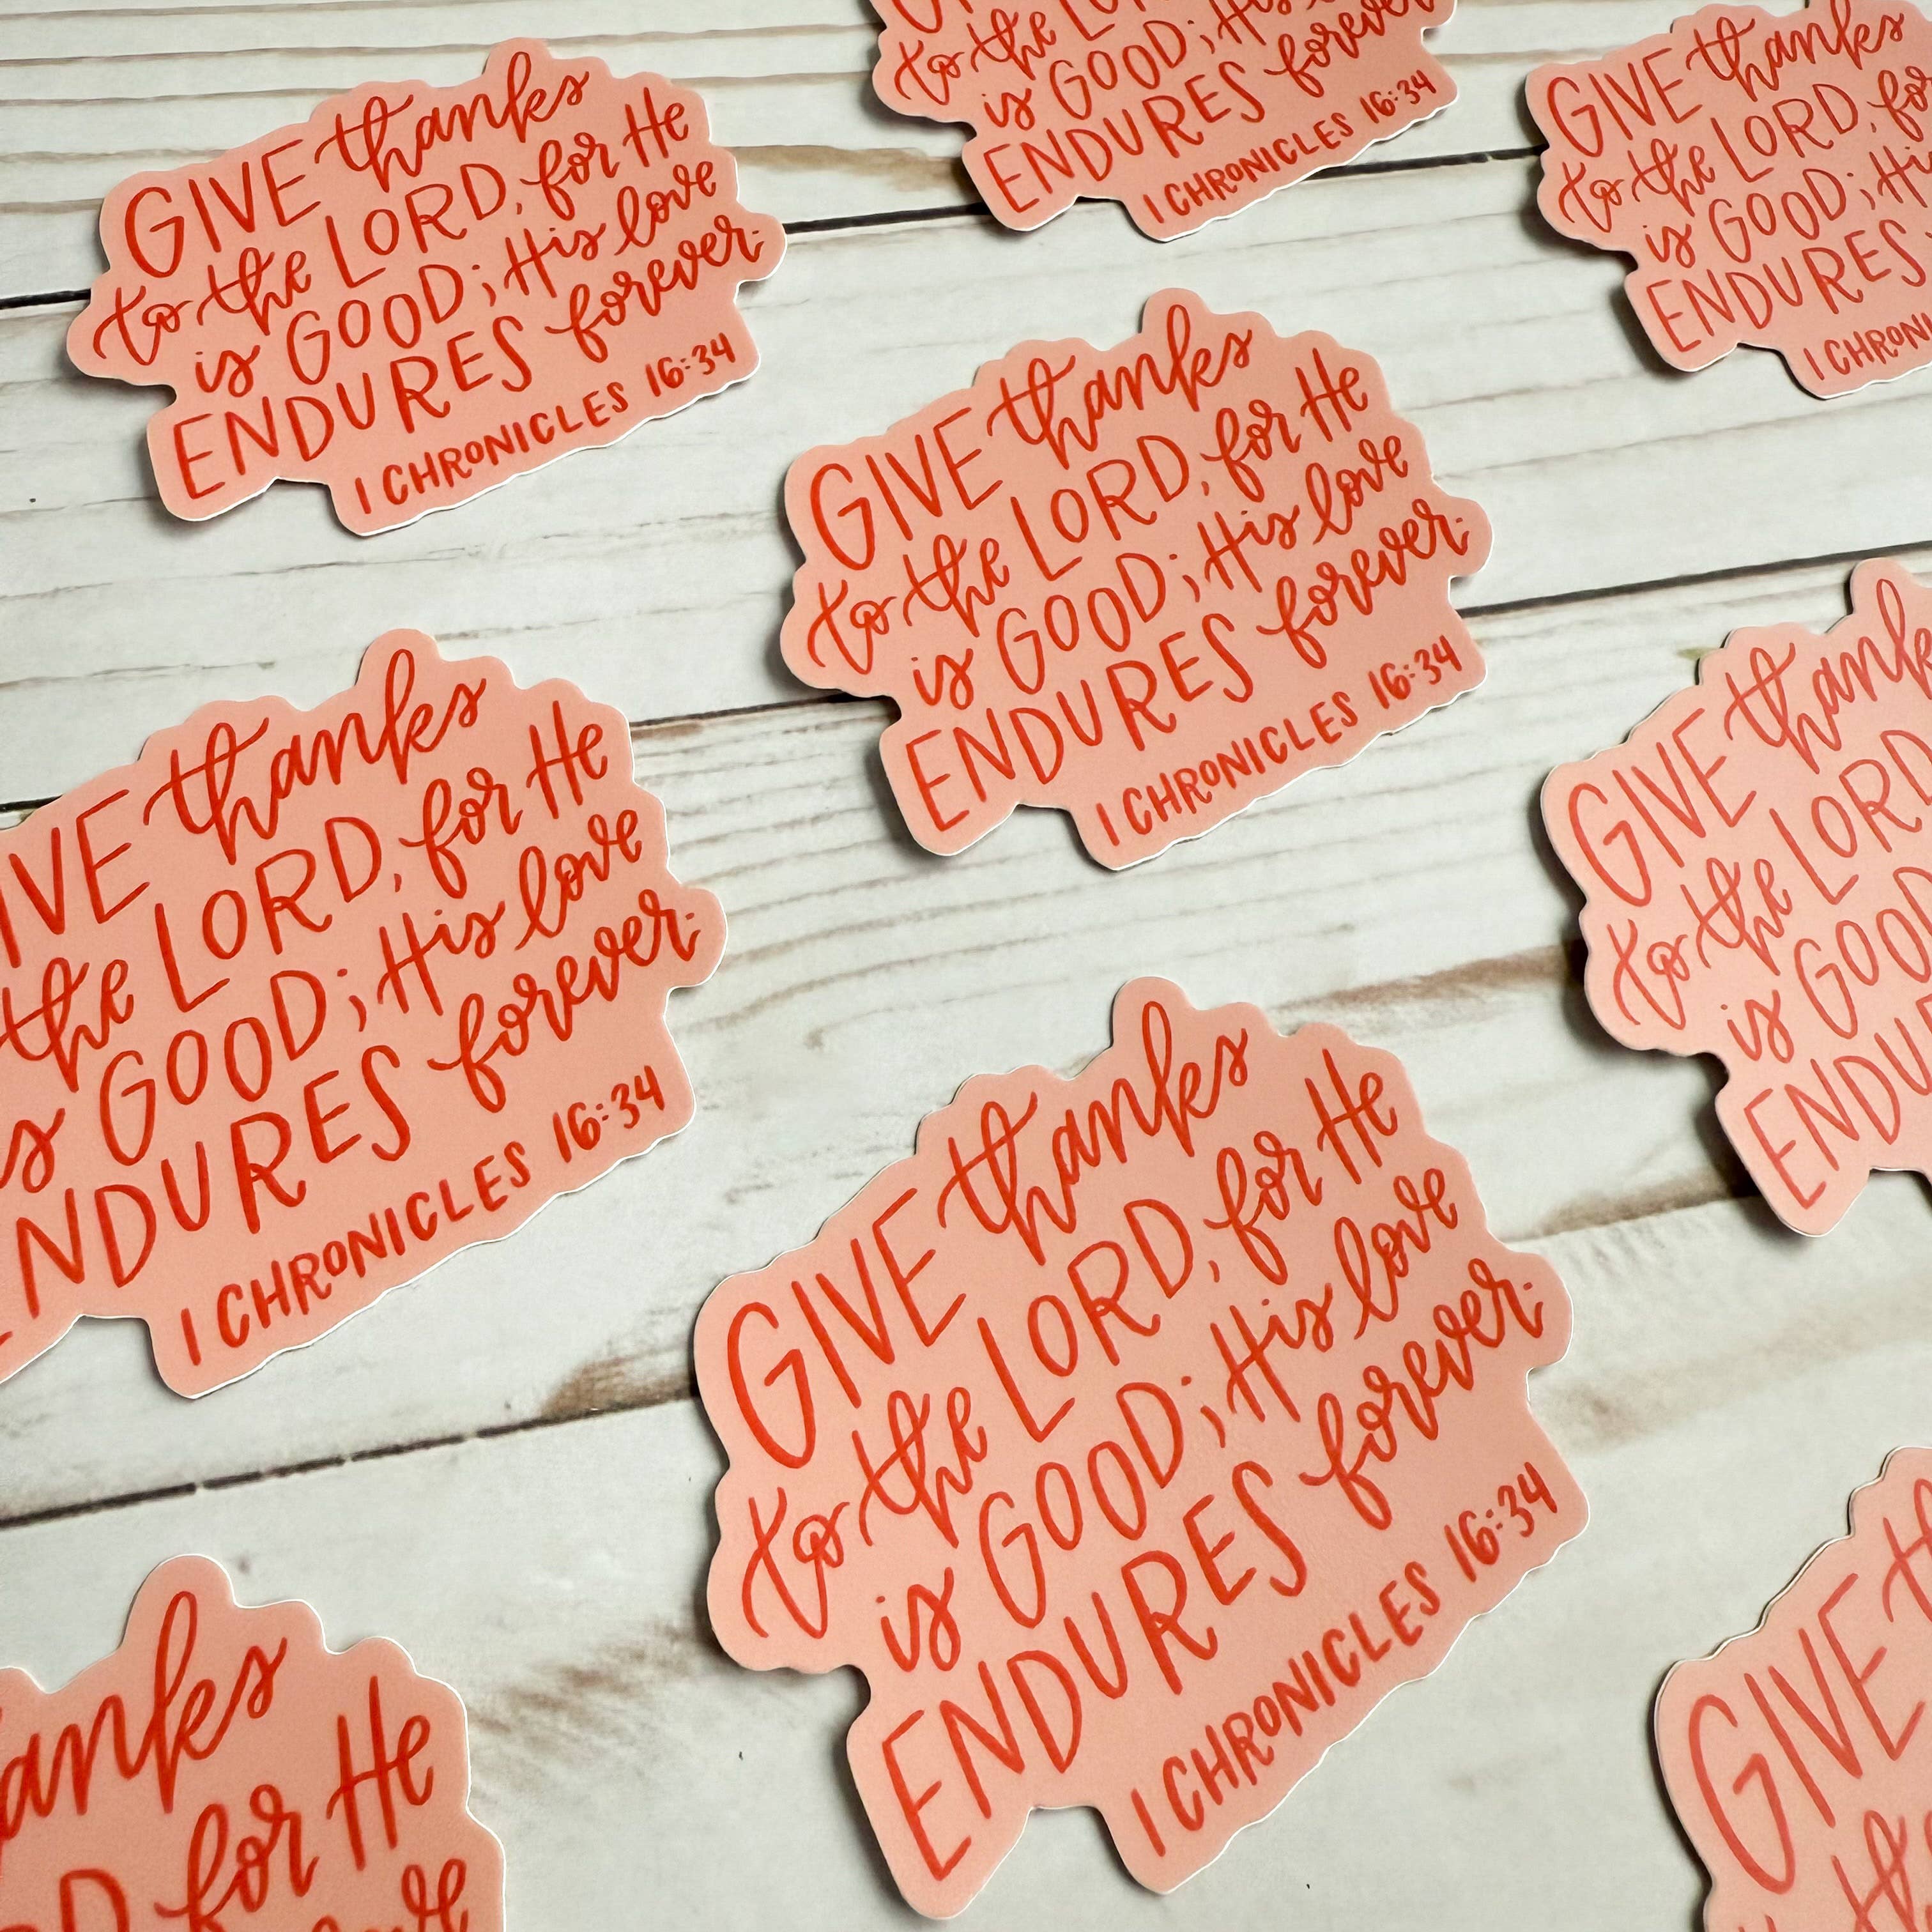 GIVE thanks
to the LORD, for He
is GOOD; His love
ENDURES forever.
1 CHRONICLES 16:34
to the
is GOOD; His
ENDURES forever
1 CHRONICLES 16:34
GIVE thanks
to the LORD, for
is GOOD; Hi
ENDURES
1 CHRONI
GIVE thanks
to the LORD, for He
is GOOD; His love
ENDURES forever.
1 CHRONICLES 16:34
IVE thanks
the LORD, for He
s GOOD; His love
NDURES forever.
1 CHRONICLES 16:34
GIVE thank
to the LORD
is GOOD
ENDU
GIVE thanks
to the LORD, for He
is GOOD; His love
ENDURES forever.
1 CHRONICLES 16:34
anks
D for He
love
GIVE